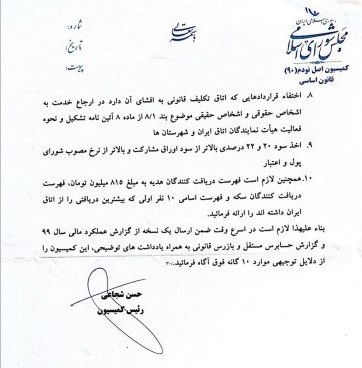 بسمه تعالی
جمهوری اسلامی ایران
مجلس شورای اسلامی
کمیسیون اصل نودم (۹۰)
قانون اساسی
شماره:
تاریخ:
پیوست:
۸. اختفاء قراردادهایی که اتاق تکلیف قانونی به افشای آن دارد در ارجاع خدمت به
اشخاص حقوقی و اشخاص حقیقی موضوع بند ۸/۱ از ماده ۸ آئین نامه تشکیل و نحوه
فعالیت هیأت نمایندگان اتاق ایران و شهرستان ها
۹. اخذ سود ۲۰ و ۲۲ درصدی بالاتر از سود اوراق مشارکت و بالاتر از نرخ مصوب شورای
پول و اعتبار
۱۰. همچنین لازم است فهرست دریافت کنندگان هدیه به مبلغ ۸۱۵ میلیون تومان، فهرست
دریافت کنندگان سکه و فهرست اسامی ۱۰ نفر اولی که بیشترین دریافتی را از اتاق
ایران داشته اند را ارائه فرمائید.
بناء علیهذا لازم است در اسرع وقت ضمن ارسال یک نسخه از گزارش عملکرد مالی سال ۹۹
و گزارش حسابرس مستقل و بازرس قانونی به همراه یادداشت های توضیحی، این کمیسیون را
از دلایل توجیهی موارد ۱۰ گانه فوق آگاه فرمائید.
حسن شجاعی
رئیس کمیسیون